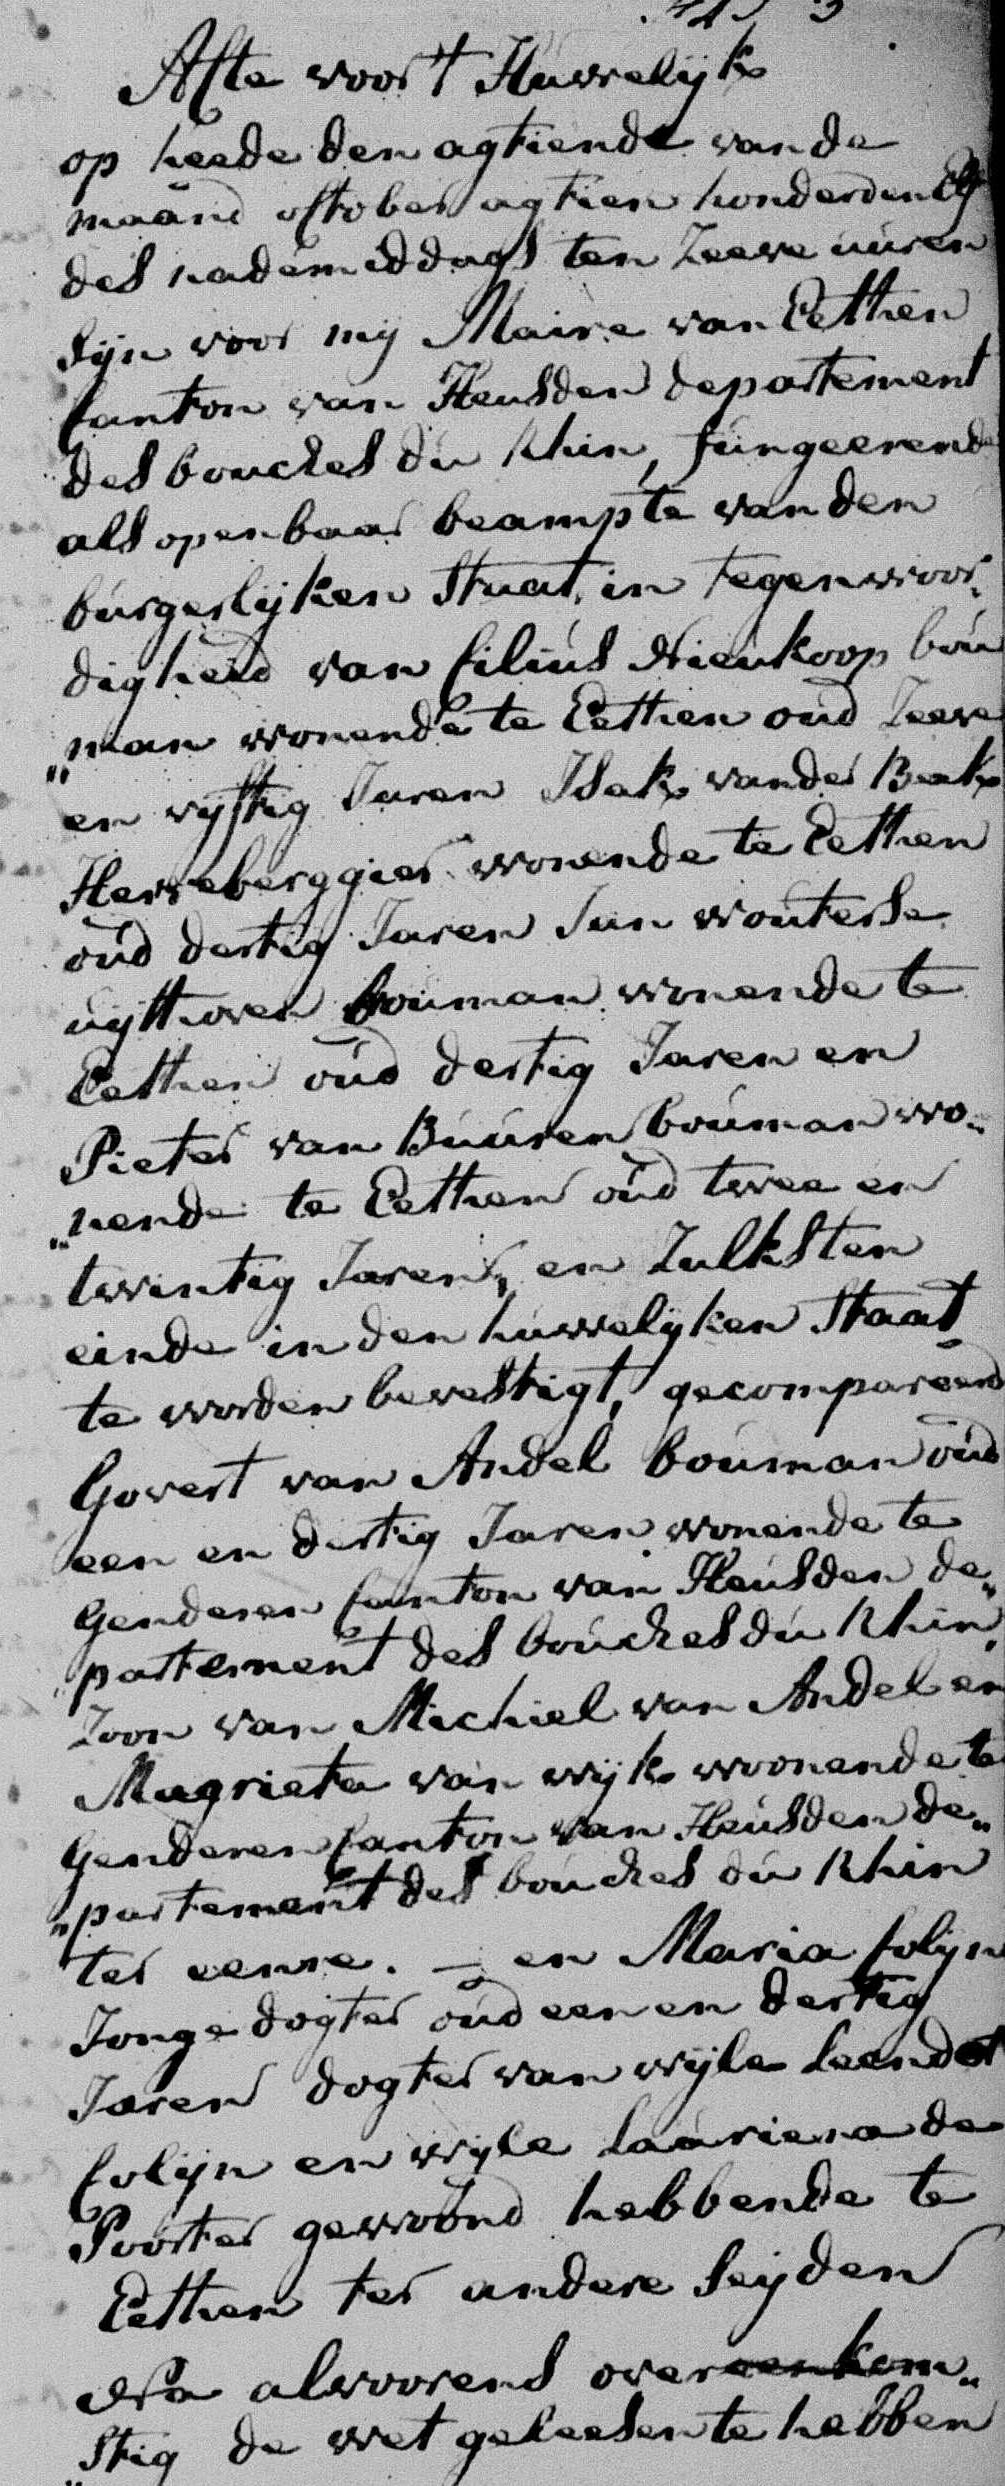 Akte voor 't Huwelijk
op heede den agtiende van de
maand october agtien honderd en Elf
des nademiddags ten Zeeve uuren
Sijn voor mij Maire van Eethen
Canton van Heusden departement
des bouches du Rhin, fungeerende
als openbaar beampte van den
burgerlijken Staat, in tegenwoor,,
digheid van Cilius Nieukoop bou
„man wonende te Eethen oud Zeeve
en vyftig Jaren Isak van der Beek
Herrebergier wonende te Eethen
oud dertig Jaren Jan Wouterse
uijthoven bouman wonende te
Eethen oud dertig Jaren en
Pieter van Buuren bouman wo„
„nende te Eethen oud twee en
twintig Jaren, en Zulks ten
einde in den huwelijken Staat
te worden bevestigt, gecompareerd
Govert van Andel bouman oud
een en dertig Jaren wonende te
Genderen Canton van Heusden de„
„partement des bouches du Rhin,
Zoon van Michiel van Andel en
Magrieta van wijk woonende te
Genderen Canton van Heusden de„
„partement des bouches du Rhin
ter eenre. — en Maria Colijn
Jonge dogter oud een en dertig
Jaren dogter van wyle Leendert
Colijn en wyle Lauriena de
Poorter gewoond hebbende te
Eethen ter andere Seijden
Na alvoorens overeenkom„
„stig de wet geleesen te hebben